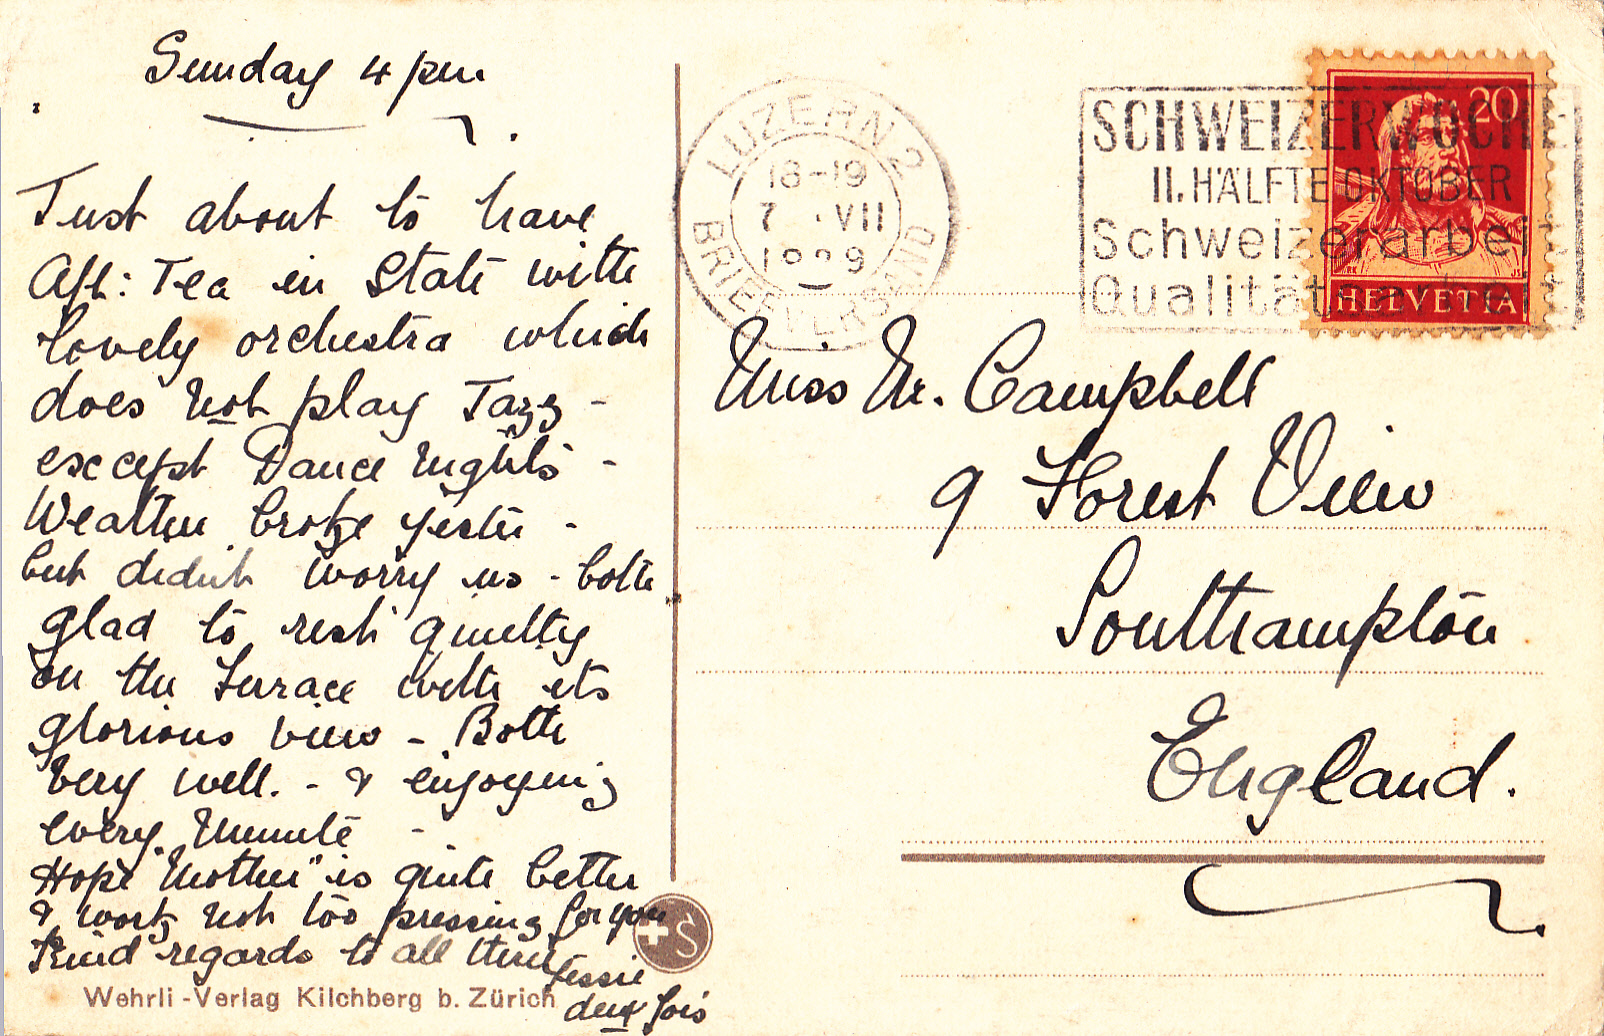 Sunday 4 pm
Just about to have
Aft: Tea in State with
lovely orchestra which
does not play Jazz -
except Dance Nights -
Weather broke yester -
but didn't worry us - both
glad to rest quietly
on the Terrace with its
glorious view - Both
very well. - & enjoying
every minute -
Hope "Mother" is quite better
& work not too pressing for you
Kind regards to all there
Jessie
Wehrli-Verlag Kilchberg b. Zürich
LUZERN 2
18-19
7 . VII
BRIEFVERSAND
SCHWEIZERWOCHE
II. HÄLFTE OKTOBER
Schweizerarbeit
Qualitätsarbeit
20
HELVETIA
Miss M. Campbell
9 Forest View
Southampton
England.